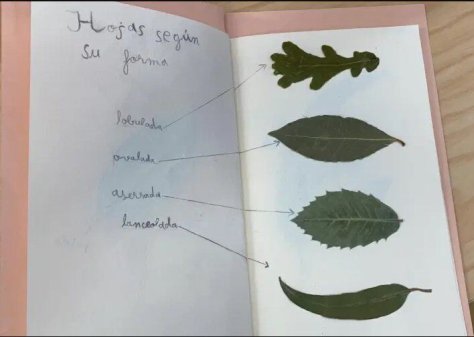 Hojas según
su forma
lobulada
ovalada
aserrada
lanceolada